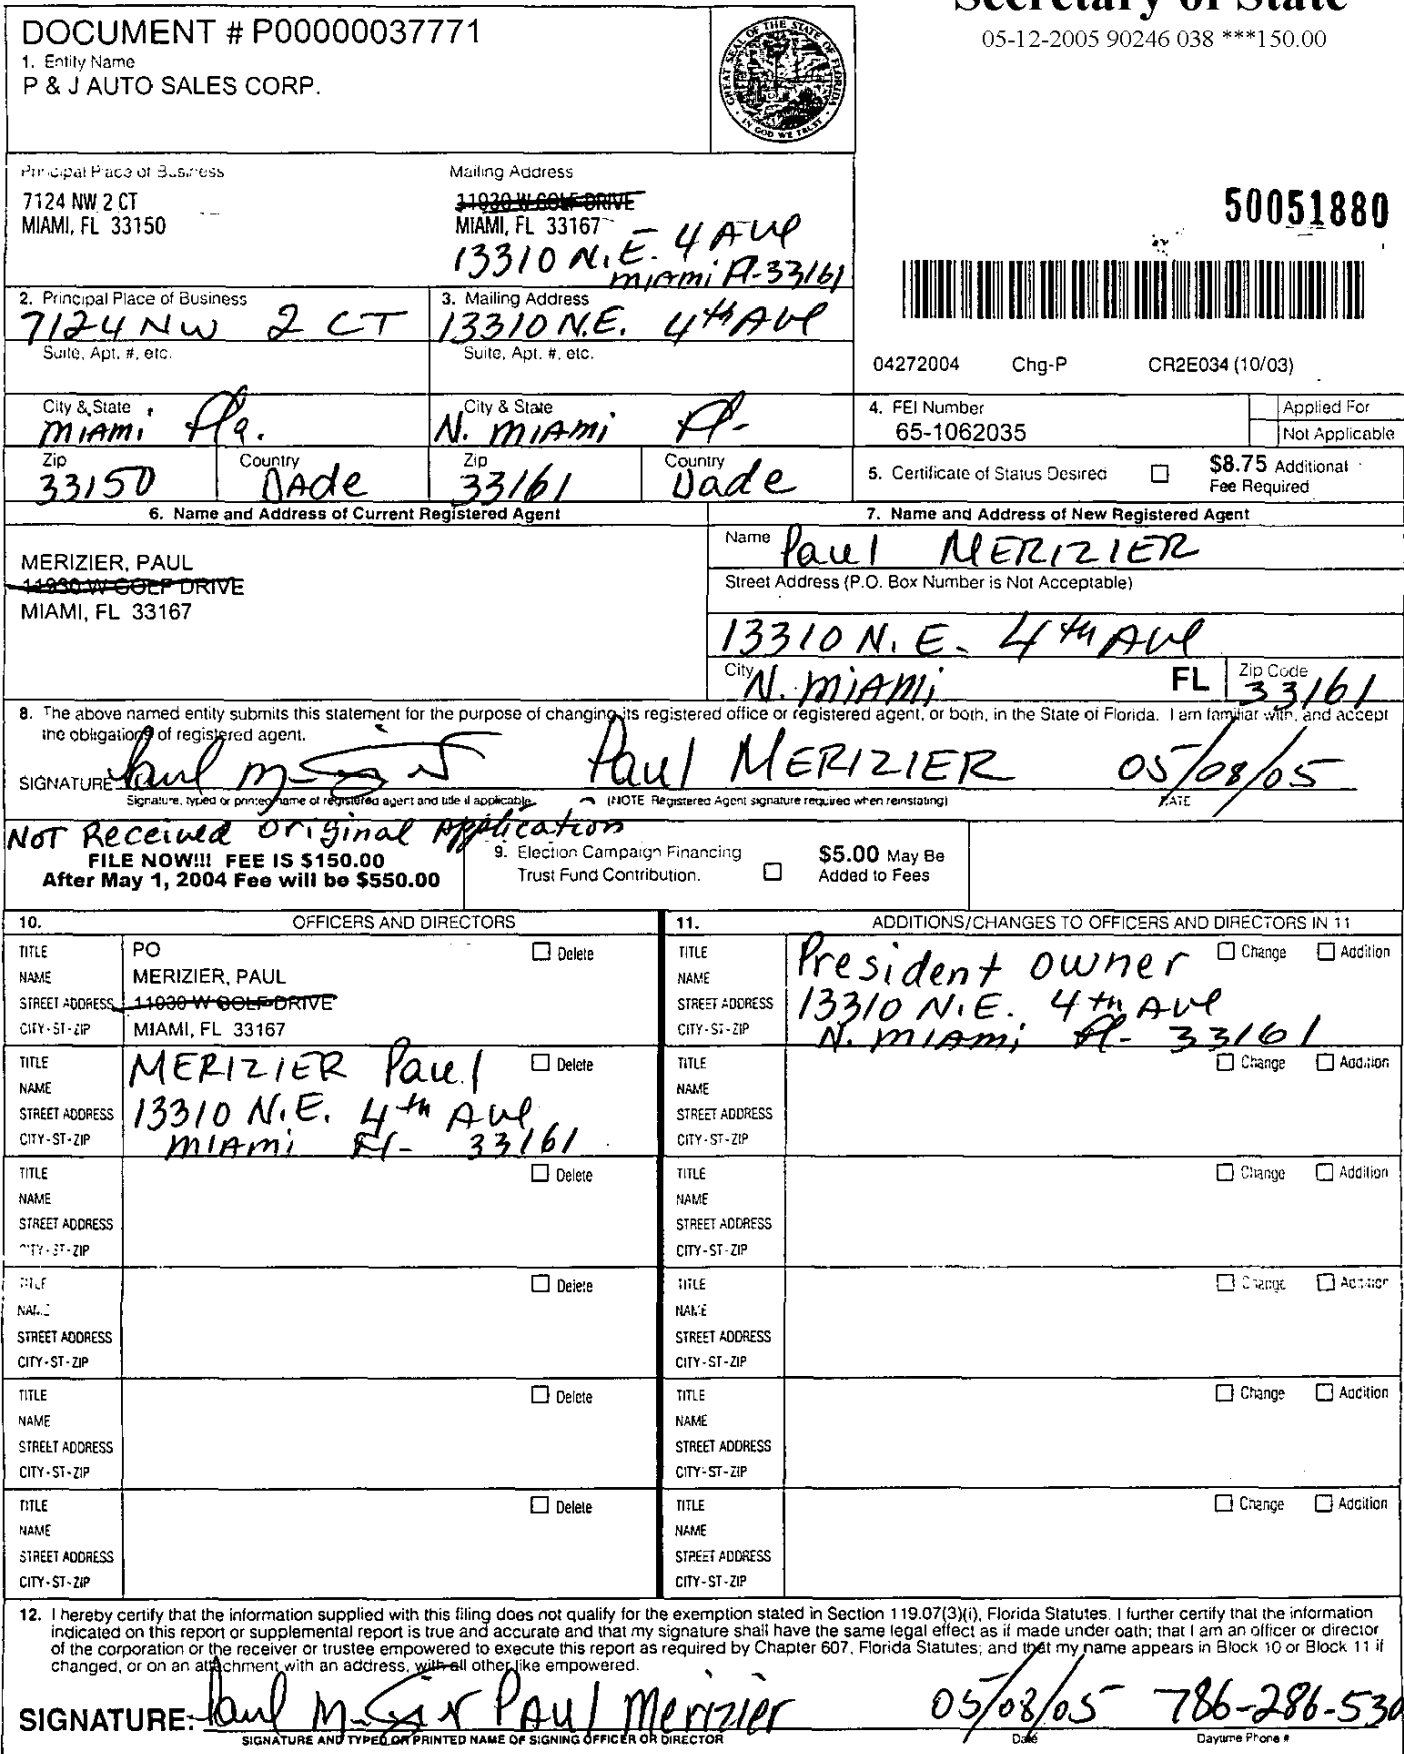 Secretary of State
05-12-2005 90246 038 ***150.00
DOCUMENT # P00000037771
1. Entity Name
P & J AUTO SALES CORP.
GREAT SEAL OF THE STATE OF FLORIDA
IN GOD WE TRUST
Principal Place of Business
Mailing Address
7124 NW 2 CT
MIAMI, FL 33150
11930 W GOLF DRIVE
MIAMI, FL 33167
13310 N.E. 4 Ave
Miami Fl-33161
50051880
2. Principal Place of Business
7124 NW 2 CT
3. Mailing Address
13310 N.E. 4th Ave
Suite, Apt. #, etc.
Suite, Apt. #, etc.
04272004 Chg-P CR2E034 (10/03)
City & State
Miami Fla.
City & State
N. Miami Fl-
4. FEI Number
65-1062035
Applied For
Not Applicable
Zip
33150
Country
DAde
Zip
33161
Country
Dade
5. Certificate of Status Desired
$8.75 Additional
Fee Required
6. Name and Address of Current Registered Agent
7. Name and Address of New Registered Agent
MERIZIER, PAUL
11930 W GOLF DRIVE
MIAMI, FL 33167
Name Paul MERIZIER
Street Address (P.O. Box Number is Not Acceptable)
13310 N.E. 4th Ave
City N. Miami FL Zip Code 33161
8. The above named entity submits this statement for the purpose of changing its registered office or registered agent, or both, in the State of Florida. I am familiar with, and accept
the obligations of registered agent.
SIGNATURE Paul MERIZIER 05/08/05
Signature, typed or printed name of registered agent and title if applicable. (NOTE Registered Agent signature required when reinstating) DATE
NOT Received original Application
FILE NOW!!! FEE IS $150.00
After May 1, 2004 Fee will be $550.00
9. Election Campaign Financing
Trust Fund Contribution.
$5.00 May Be
Added to Fees
10. OFFICERS AND DIRECTORS
11. ADDITIONS/CHANGES TO OFFICERS AND DIRECTORS IN 11
TITLE PO Delete
NAME MERIZIER, PAUL
STREET ADDRESS 11930 W GOLF DRIVE
CITY-ST-ZIP MIAMI, FL 33167
TITLE President owner Change Addition
NAME
STREET ADDRESS 13310 N.E. 4th Ave
CITY-ST-ZIP N. Miami Fl- 33161
TITLE MERIZIER Paul Delete
NAME
STREET ADDRESS 13310 N.E. 4th Ave
CITY-ST-ZIP Miami Fl- 33161
TITLE Change Addition
NAME
STREET ADDRESS
CITY-ST-ZIP
TITLE Delete
NAME
STREET ADDRESS
CITY-ST-ZIP
TITLE Change Addition
NAME
STREET ADDRESS
CITY-ST-ZIP
TITLE Delete
NAME
STREET ADDRESS
CITY-ST-ZIP
TITLE Change Addition
NAME
STREET ADDRESS
CITY-ST-ZIP
TITLE Delete
NAME
STREET ADDRESS
CITY-ST-ZIP
TITLE Change Addition
NAME
STREET ADDRESS
CITY-ST-ZIP
TITLE Delete
NAME
STREET ADDRESS
CITY-ST-ZIP
TITLE Change Addition
NAME
STREET ADDRESS
CITY-ST-ZIP
12. I hereby certify that the information supplied with this filing does not qualify for the exemption stated in Section 119.07(3)(i), Florida Statutes. I further certify that the information
indicated on this report or supplemental report is true and accurate and that my signature shall have the same legal effect as if made under oath; that I am an officer or director
of the corporation or the receiver or trustee empowered to execute this report as required by Chapter 607, Florida Statutes; and that my name appears in Block 10 or Block 11 if
changed, or on an attachment with an address, with all other like empowered.
SIGNATURE: Paul Merizier 05/08/05 786-286-530
SIGNATURE AND TYPED OR PRINTED NAME OF SIGNING OFFICER OR DIRECTOR Date Daytime Phone #